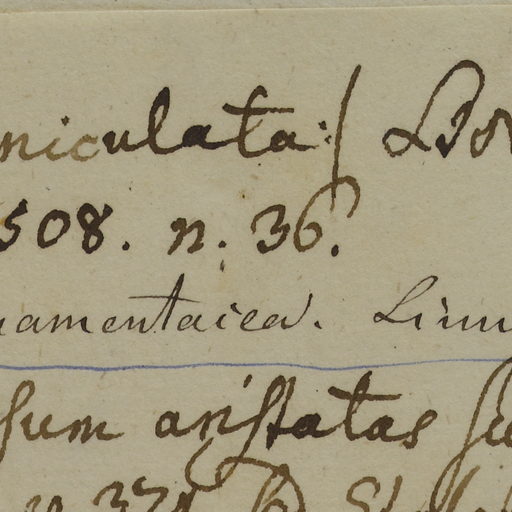 niculata:/
508. n. 36.
amentacea. Linn
sum aristatas
n. 371.